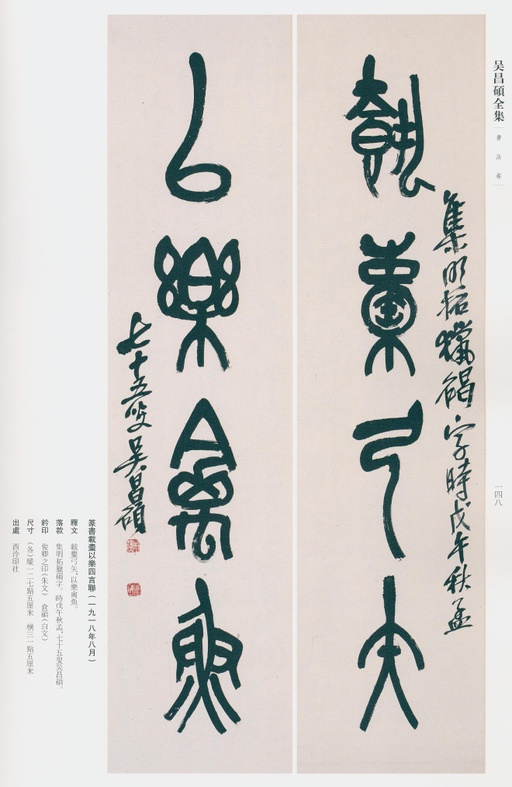 吴昌碩全集
書法卷
一四八
集明拓獵碣字時戊午秋孟
載橐弓矢
以樂禽魚
七十五叟吴昌碩
篆書載橐以樂四言聯(一九一八年八月)
釋文 載橐弓矢,以樂禽魚。
落款 集明拓獵碣字。時戊午秋孟,七十五叟吴昌碩。
鈐印 俊卿之印(朱文) 倉碩(白文)
尺寸 (各)縱一二七點五厘米 橫三一點五厘米
出處 西泠印社